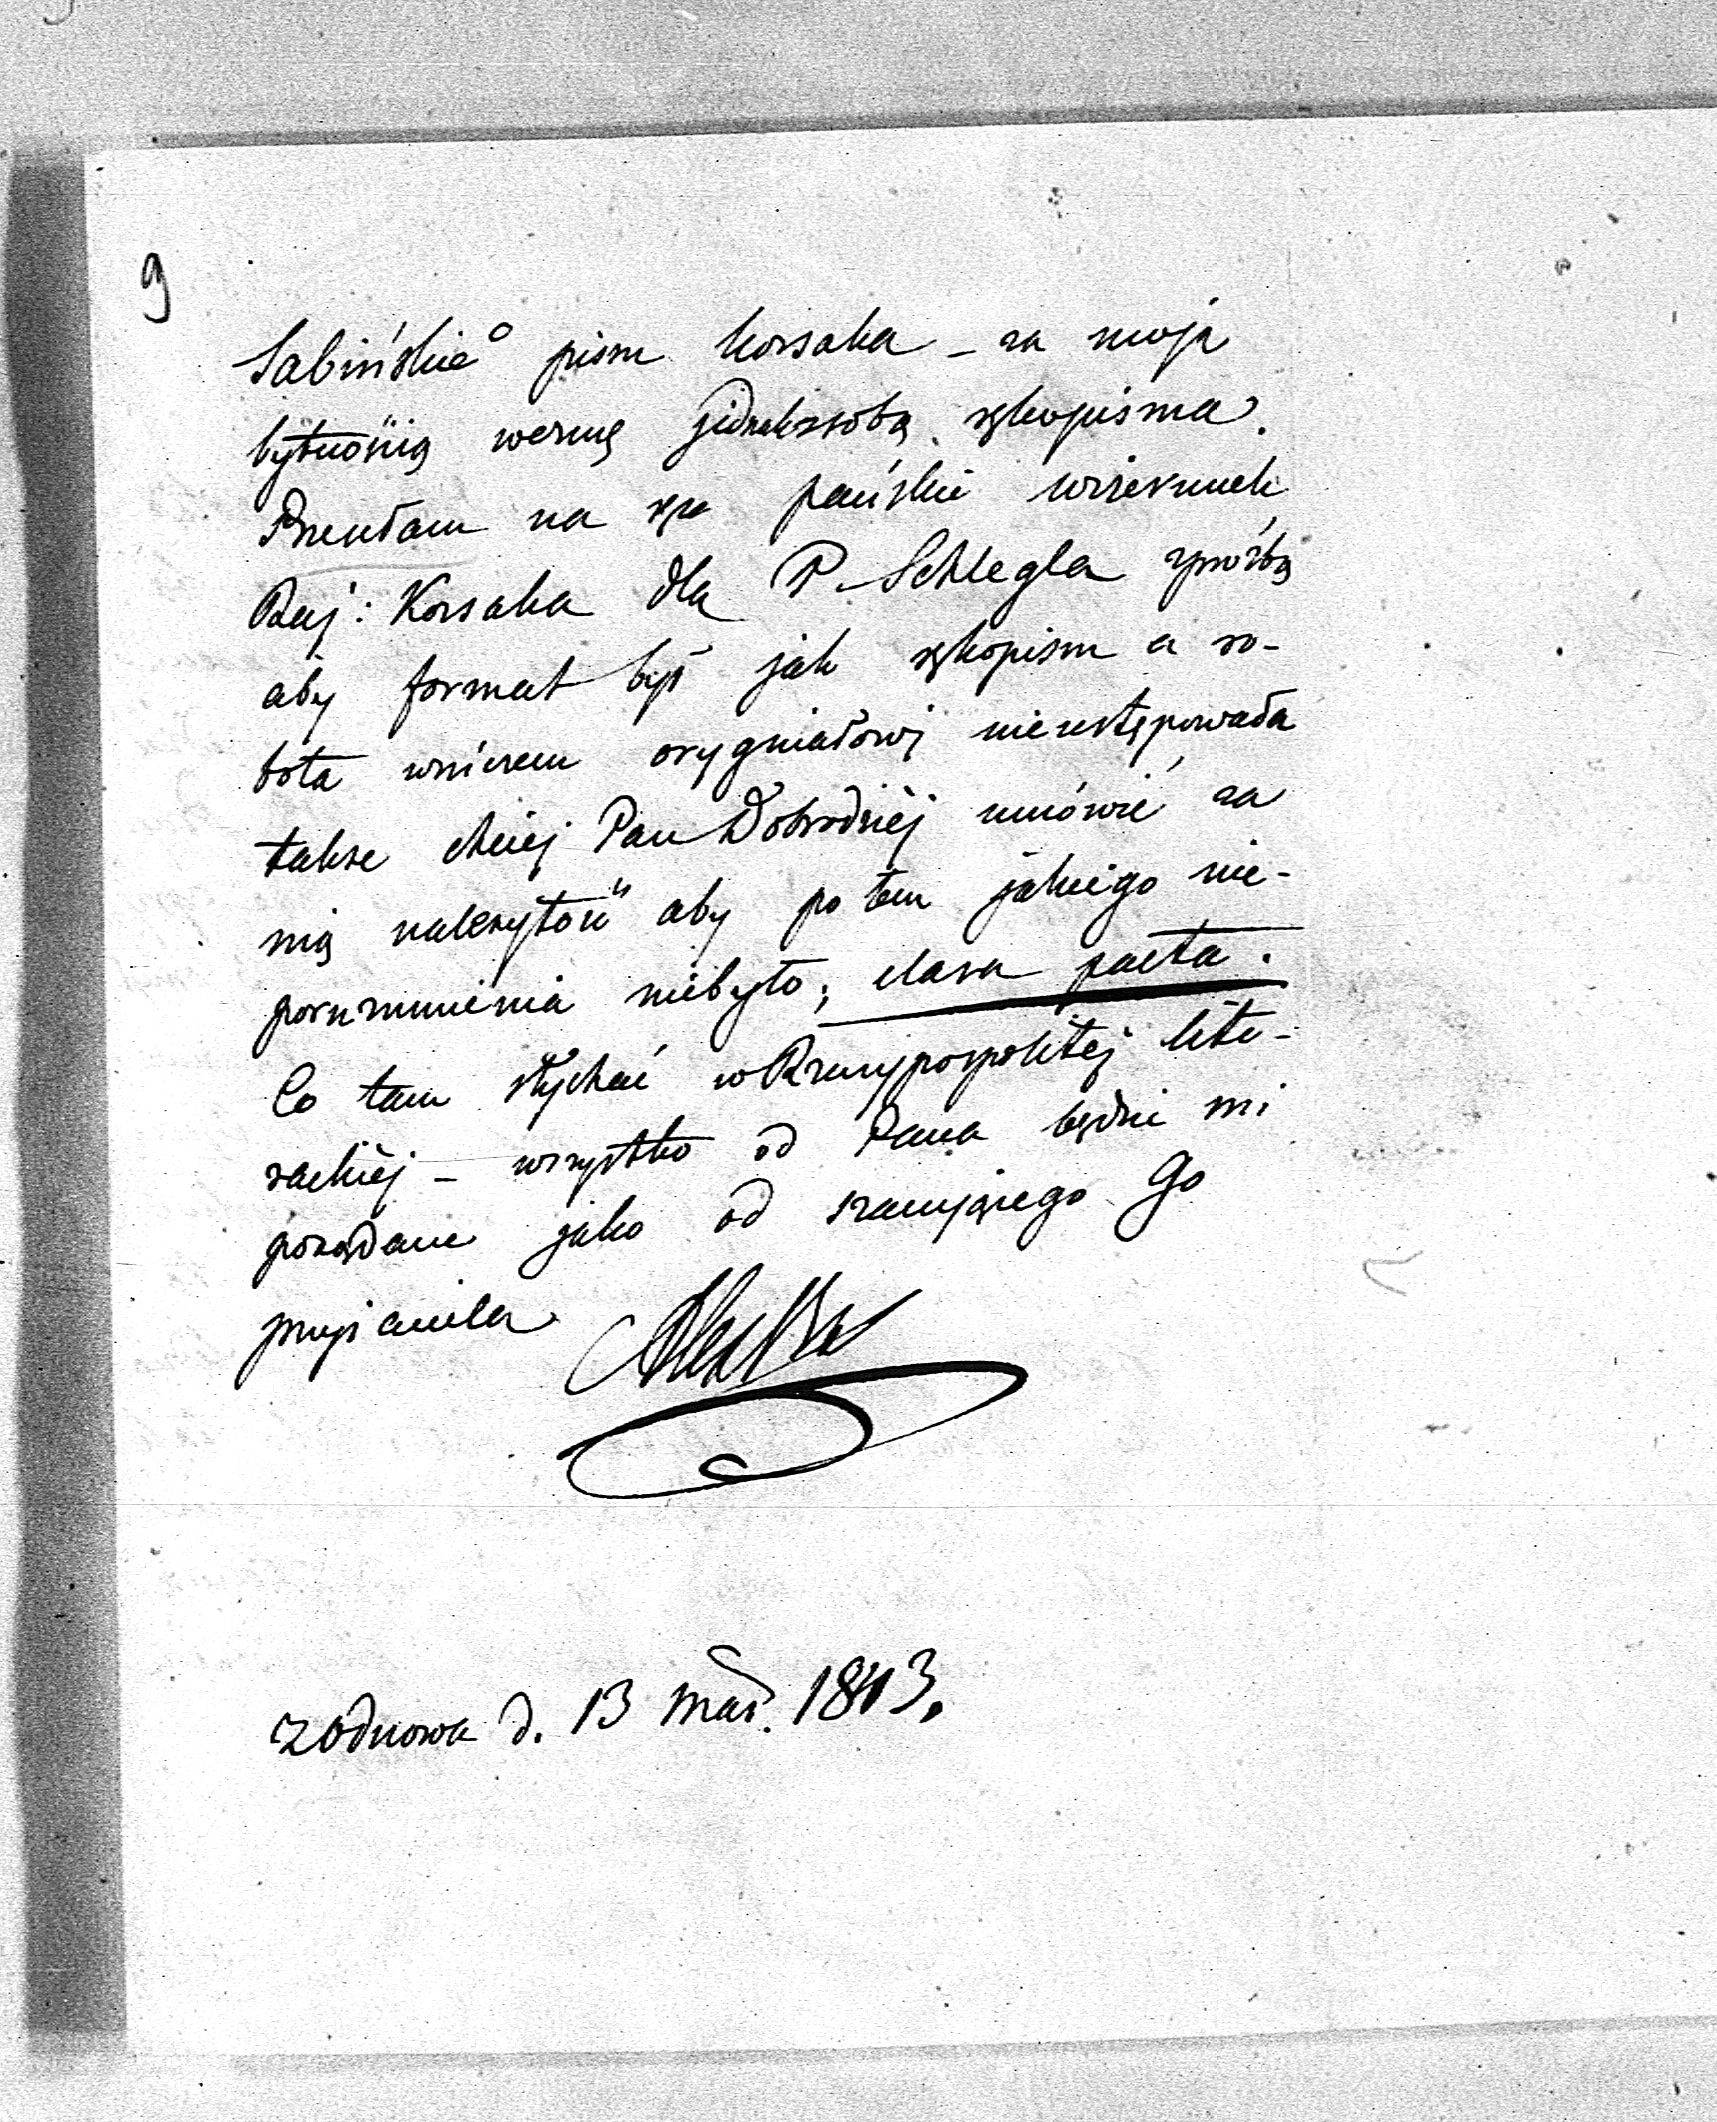 9
Sabińskie° pism Korsaka – za moją
bytnością wezmę jednakzsobą rękopisma.
Przesłam na ręce pańskie wizerunek
Raj: Korsaka dla P. Schlegla zproźbą
aby format był jak rękopism a ro-
bota wniczem oryginałowj nieustępowała
także chciej Pan Dobrodziéj umówić za
nią należytość aby potem jakiego nie-
porozumienia niebyło; clara pacta.
Co tam słychać wRzeczypospolitéj lite-
rackiéj – wszystko od Pana będzie mi
pożądane jako od szanującego Go
przyjaciela
zodnowa d. 13 Mar. 1843.